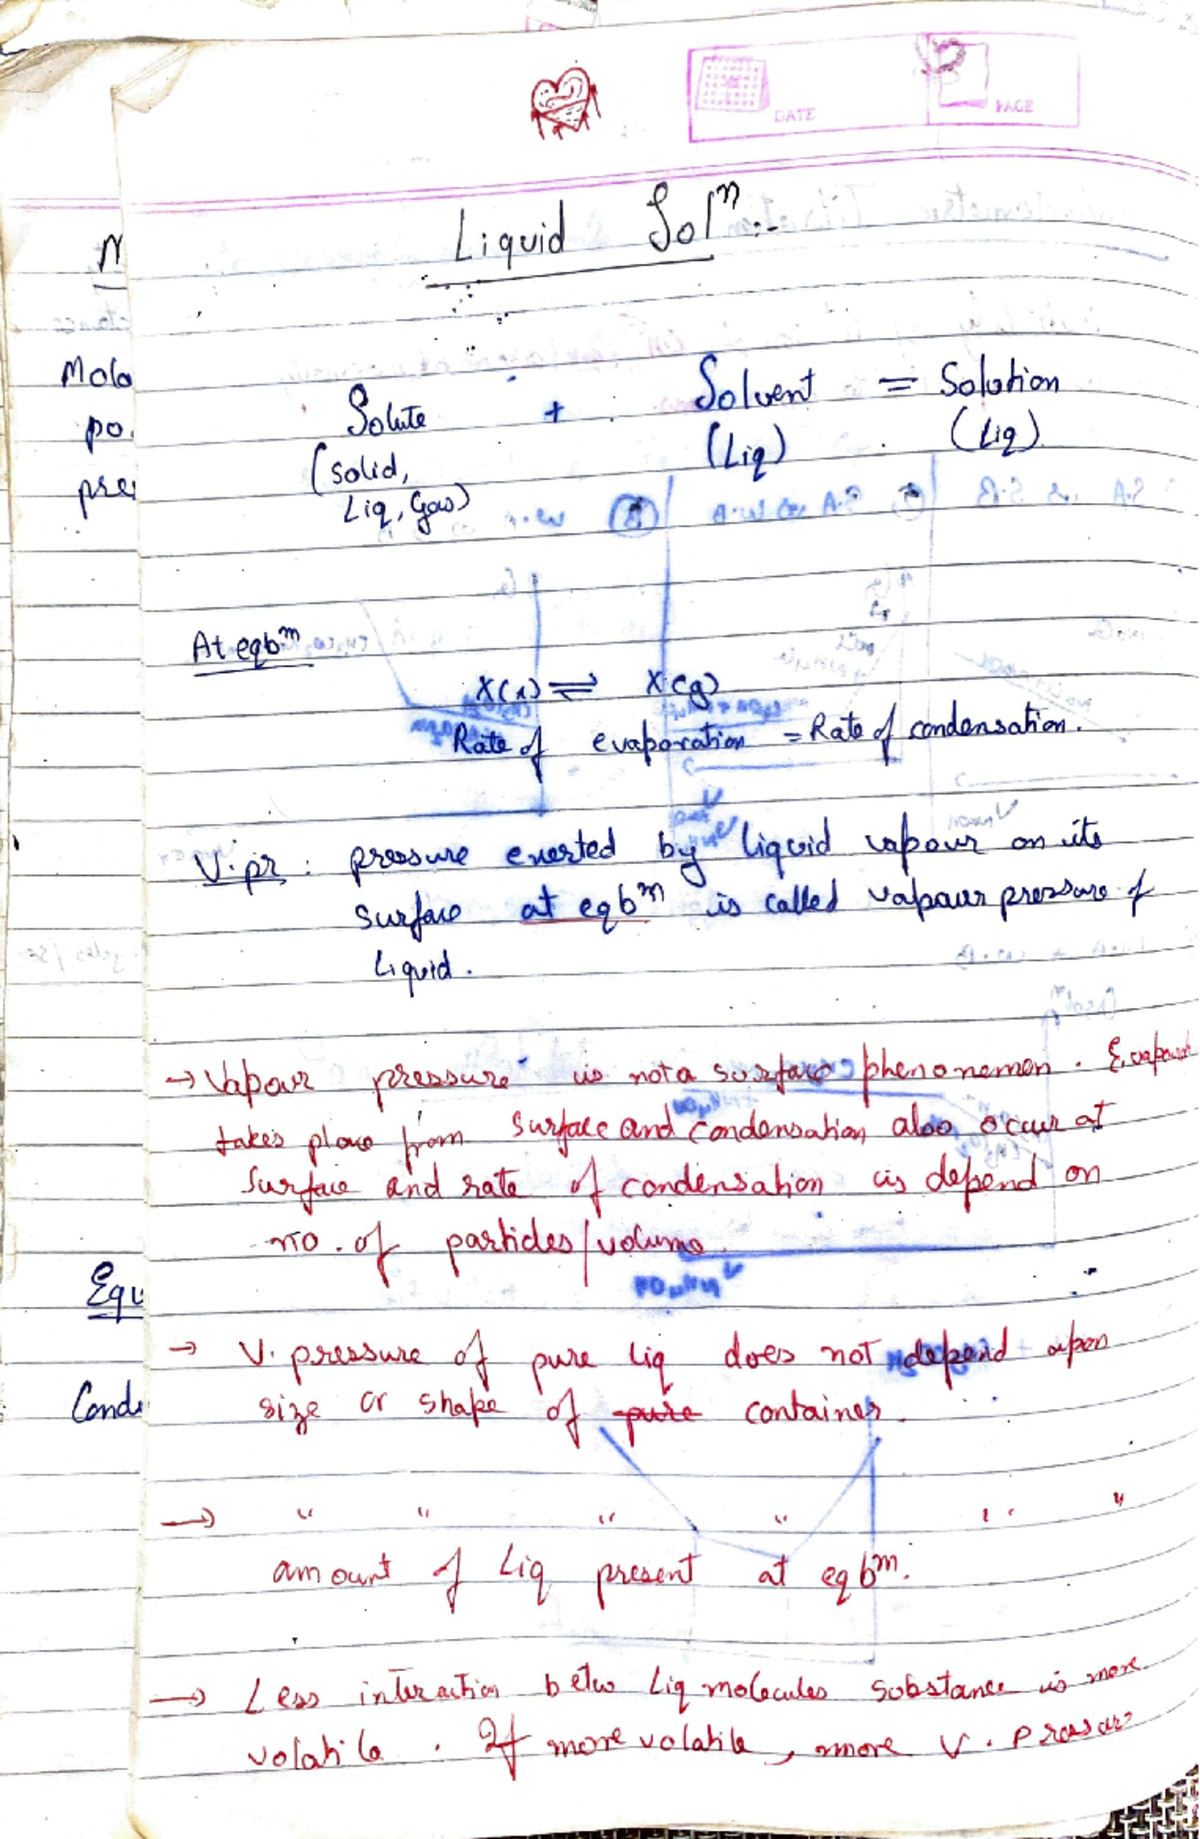 DATE
PAGE
Liquid Solⁿ:-
Solute + Solvent = Solution
(solid, (Liq) (Liq)
Liq, Gas)
At eqbᵐ
X(l) ⇌ X(g)
Rate of evaporation = Rate of condensation.
V.pr : pressure exerted by liquid vapour on its
surface at eqbᵐ is called vapour pressure of
Liquid.
→ Vapour pressure is not a surface phenomenon. Evapour
takes place from surface and condensation also occur at
surface and rate of condensation is depend on
no. of particles/volume.
→ V. pressure of pure liq does not depend upon
size or shape of pure container.
→ " " " " " "
amount of Liq present at eqbᵐ.
→ Less interaction betw Liq molecules substance is more
volatile. If more volatile, more V. Pressure
Mola
po.
pre
Equ
Cond